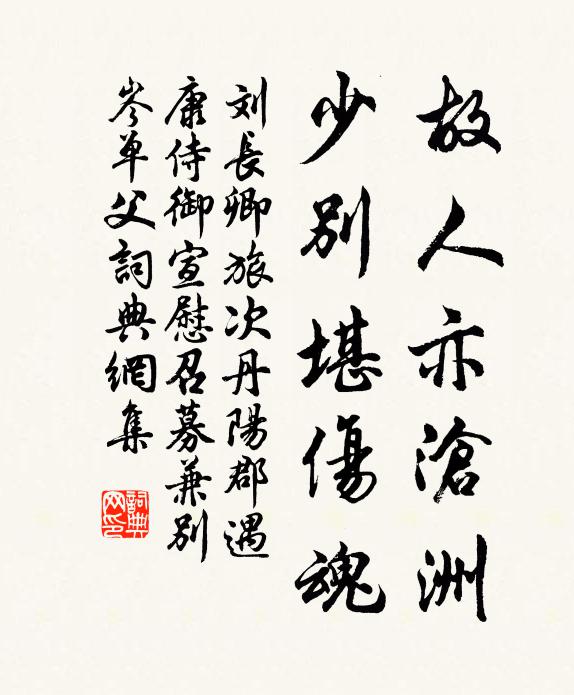 故人亦滄洲
少別堪傷魂
刘長卿旅次丹陽郡遇
康侍御宣慰召募兼別
岑单父詞典網集
詞典网印